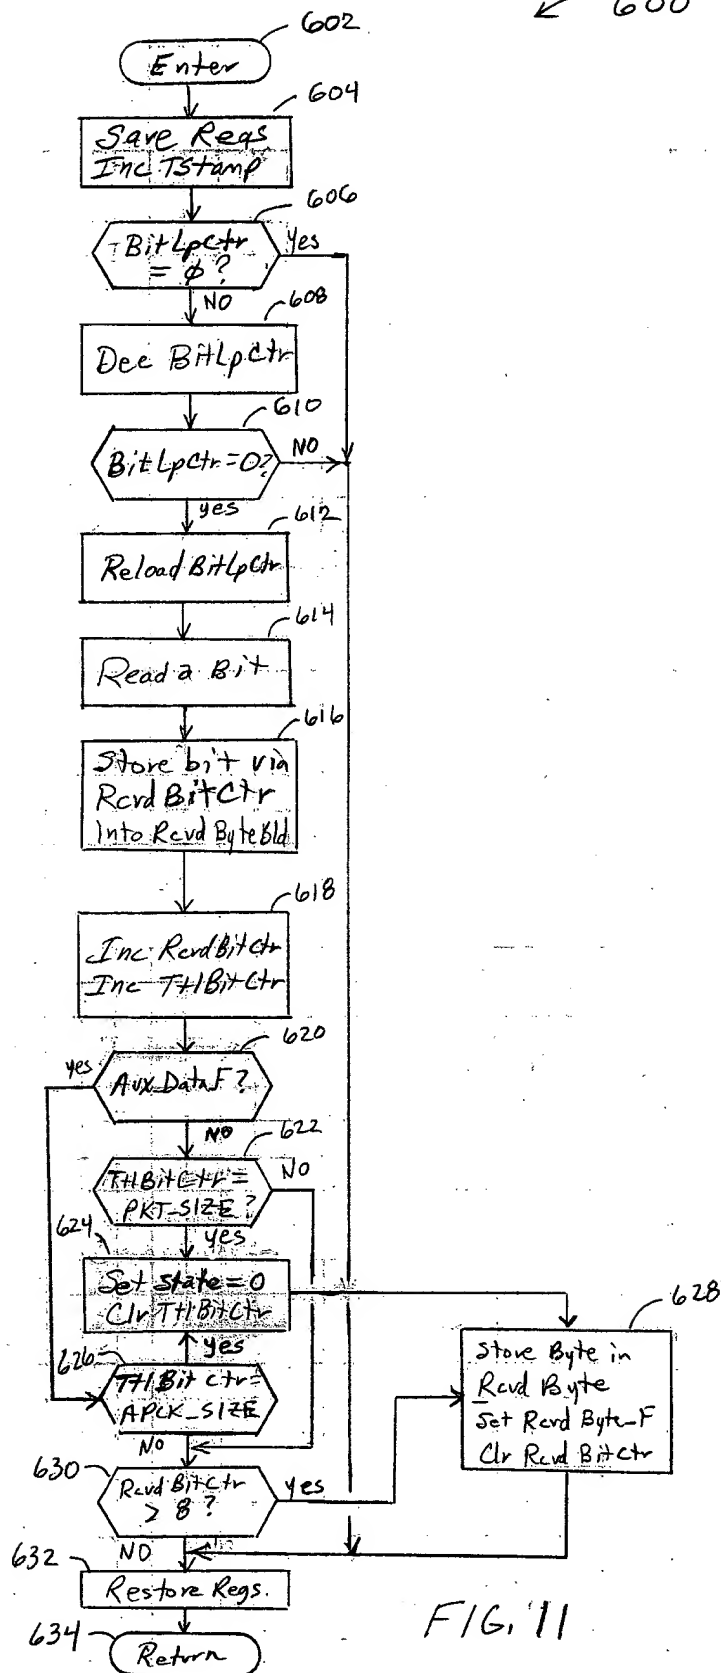 600
602
Enter
604
Save Regs
Inc TStamp
606
BitLpCtr
= φ?
Yes
NO
608
Dec BitLpCtr
610
BitLpCtr=0?
NO
yes
612
Reload BitLpCtr
614
Read a Bit
616
Store bit via
Rcvd BitCtr
Into Rcvd ByteBld
618
Inc RcvdBitCtr
Inc TtlBitCtr
620
yes
Aux_DataF?
NO
622
TtlBitCtr=
PKT_SIZE?
NO
yes
624
Set state=0
Clr TtlBitCtr
628
Store Byte in
Rcvd Byte
Set Rcvd Byte_F
Clr Rcvd BitCtr
yes
626
TtlBitCtr=
APCK_SIZE
NO
630
Rcvd BitCtr
> 8?
yes
NO
632
Restore Regs.
634
Return
FIG. 11